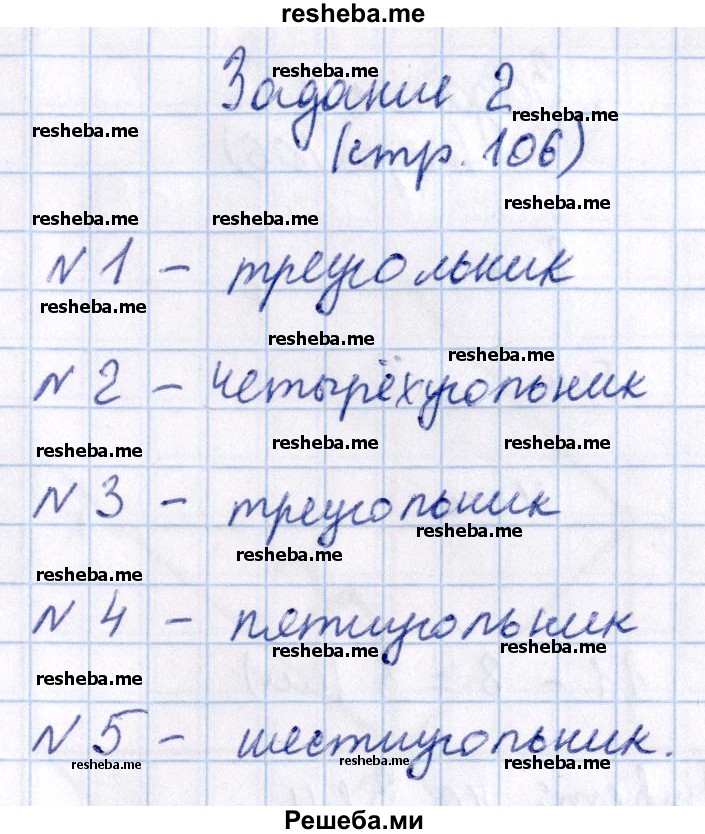 resheba.me
Задание 2
resheba.me
resheba.me
resheba.me
(стр. 106)
resheba.me
resheba.me
resheba.me
N 1 - треугольник
resheba.me
resheba.me
resheba.me
N 2 - четырёхугольник
resheba.me
resheba.me
resheba.me
N 3 - треугольник
resheba.me
resheba.me
resheba.me
N 4 - пятиугольник
resheba.me
resheba.me
resheba.me
N 5 - шестиугольник.
resheba.me
resheba.me
resheba.me
Решеба.ми